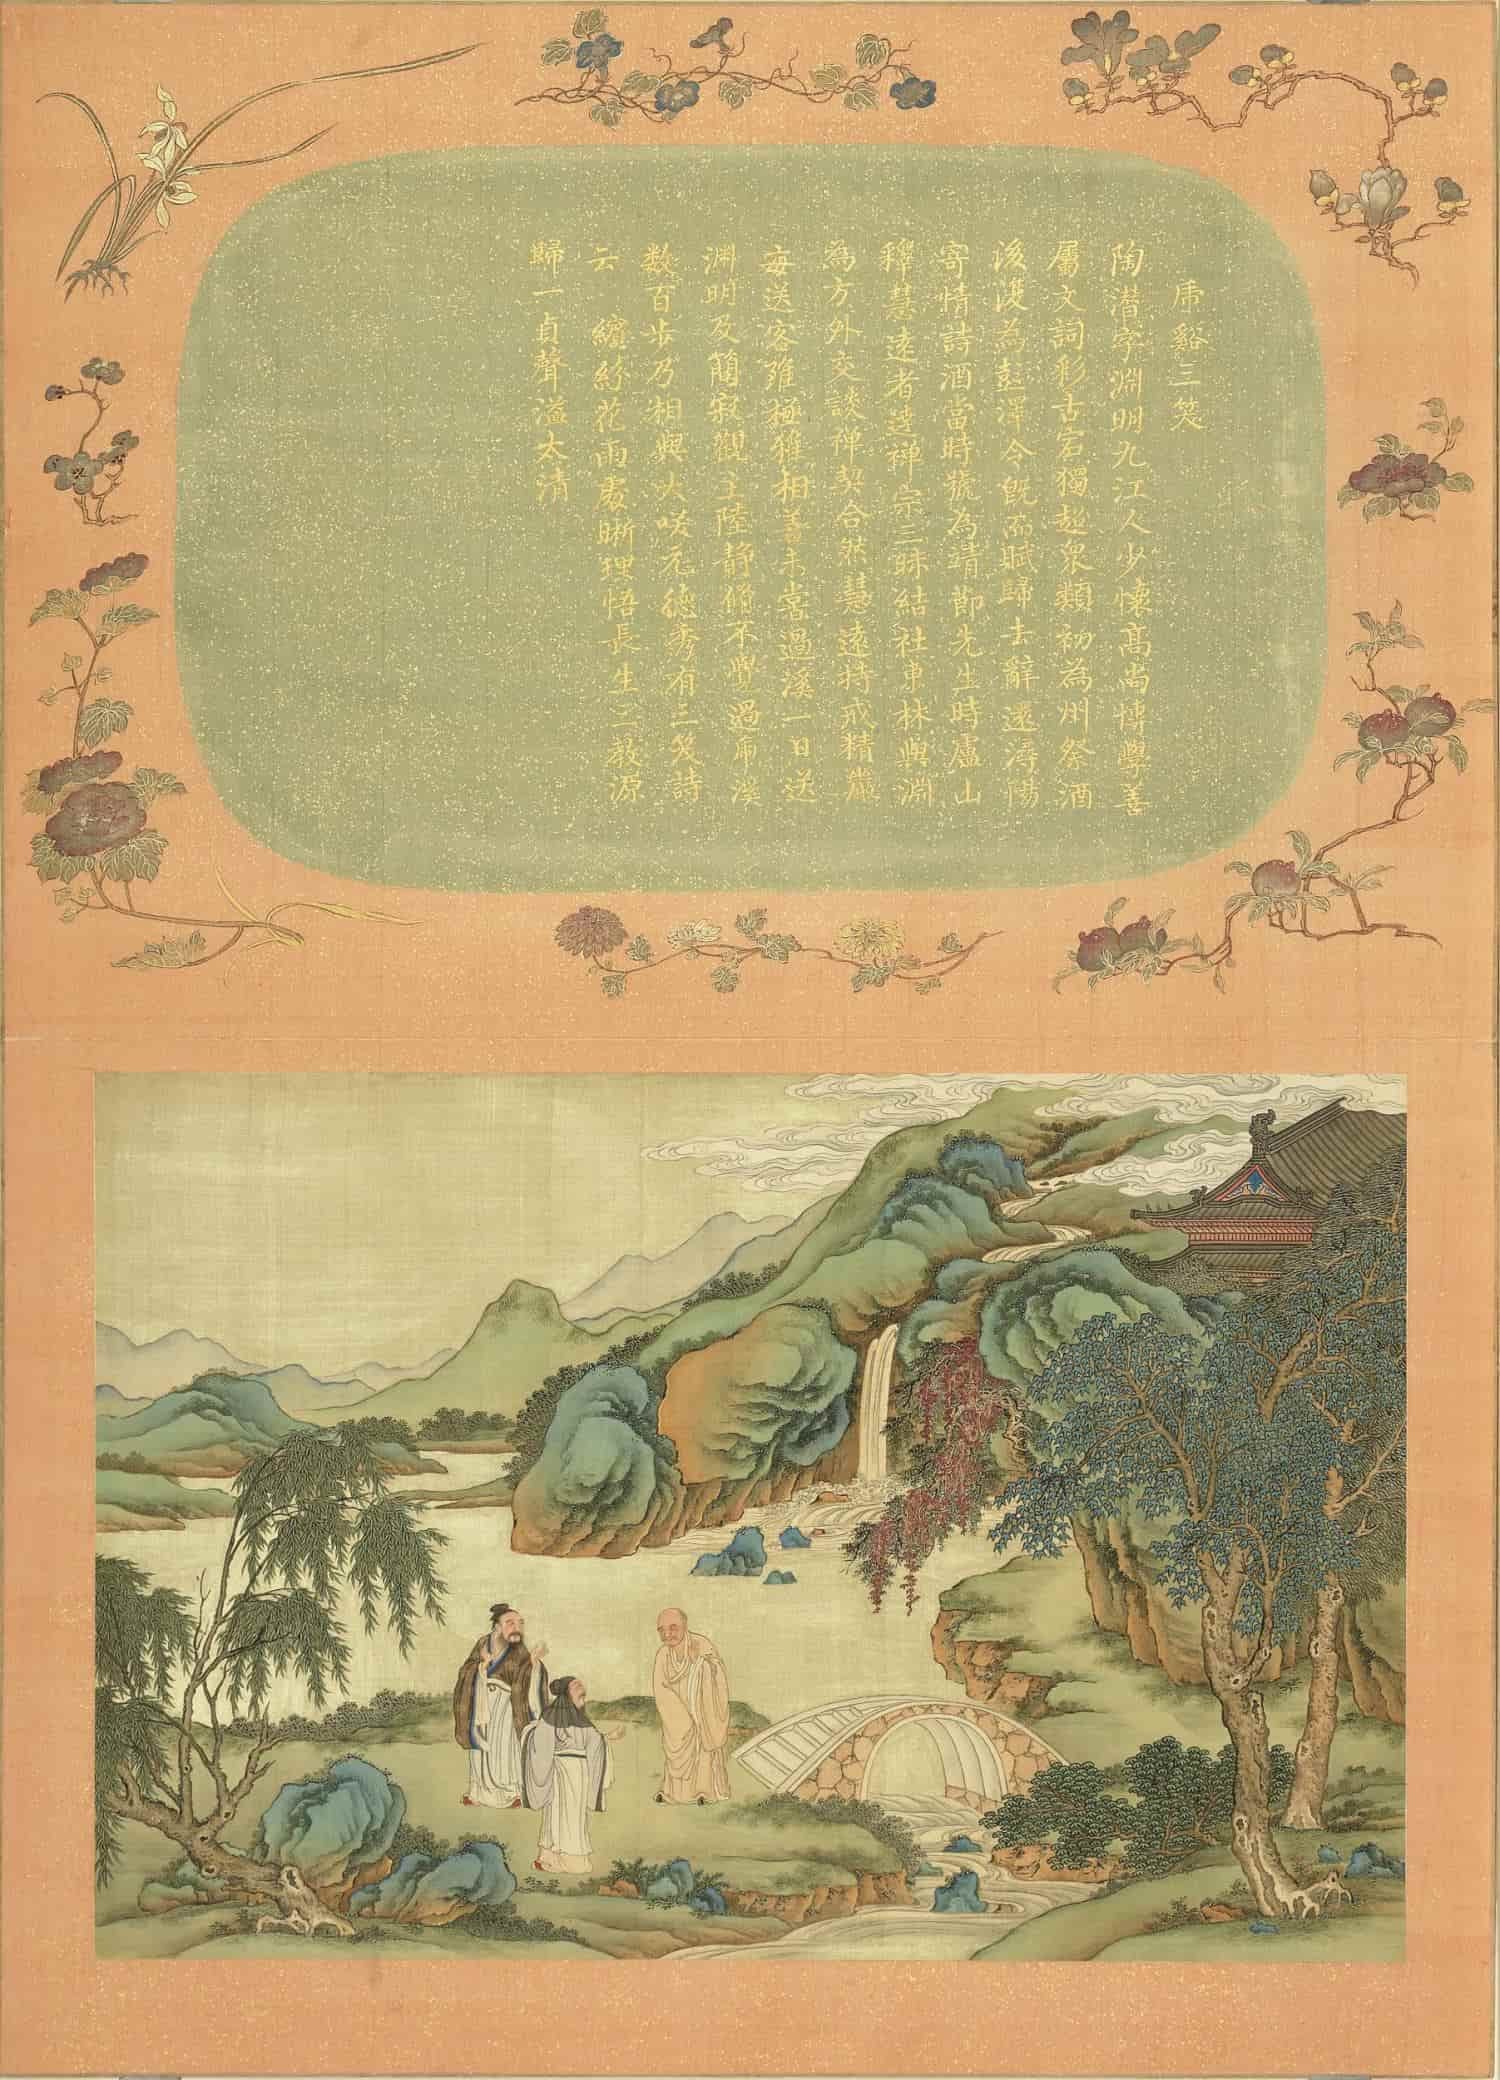 虎谿三笑
陶潛字淵明九江人少懷高尚博學善
屬文詞彩古宕獨超眾類初為州祭酒
後復為彭澤令旣而賦歸去辭還潯陽
寄情詩酒當時號為靖節先生時廬山
釋慧遠者禪宗三昧結社東林與淵
為方外交談禪契合然慧遠持戒精嚴
每送客雖極雅相善未嘗過溪一日送
淵明及簡寂觀主陸靜脩不覺過虎溪
数百步乃相與大咲元德秀有三笑詩
云 繽紛花雨處晰理悟長生二教源
歸一貞聲溢太清